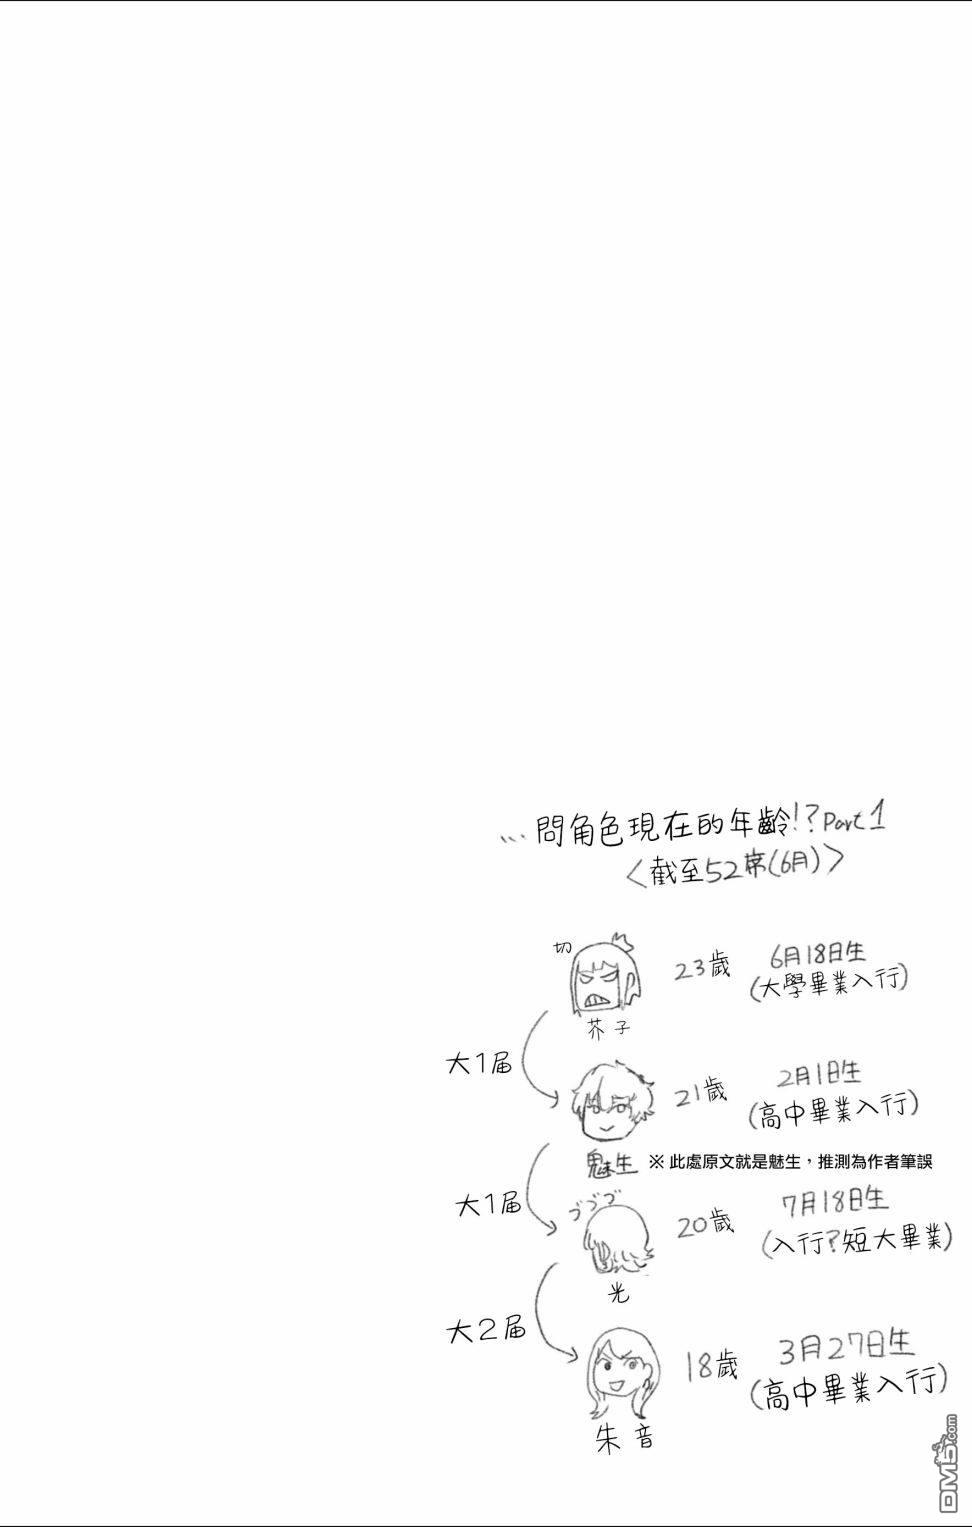 … 問角色現在的年齡!?Part 1
〈截至52席(6月)〉
切
23歲
6月18日生
(大學畢業入行)
芥子
大1屆
21歲
2月1日生
(高中畢業入行)
魅生
※ 此處原文就是魅生，推測為作者筆誤
大1屆
づづづ
20歲
7月18日生
(入行?短大畢業)
光
大2屆
18歲
3月27日生
(高中畢業入行)
朱音
DM5.com